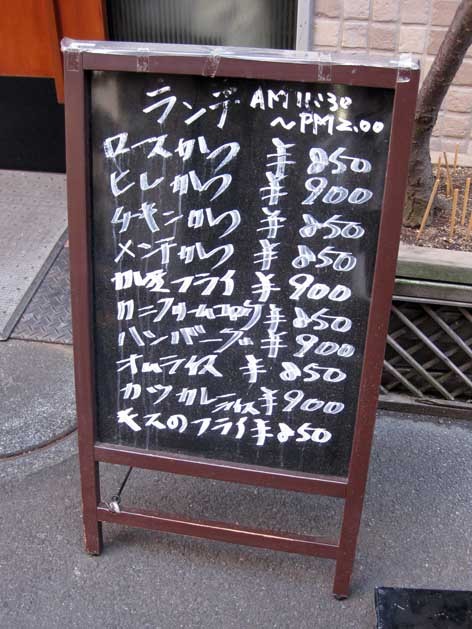 ランチ AM 11:30
～PM 2.00
ロースかつ ¥850
ヒレかつ ¥900
チキンかつ ¥850
メンチかつ ¥850
かきフライ ¥900
カニクリームコロッケ ¥850
ハンバーグ ¥900
オムライス ¥850
カツカレーライス ¥900
キスのフライ ¥850